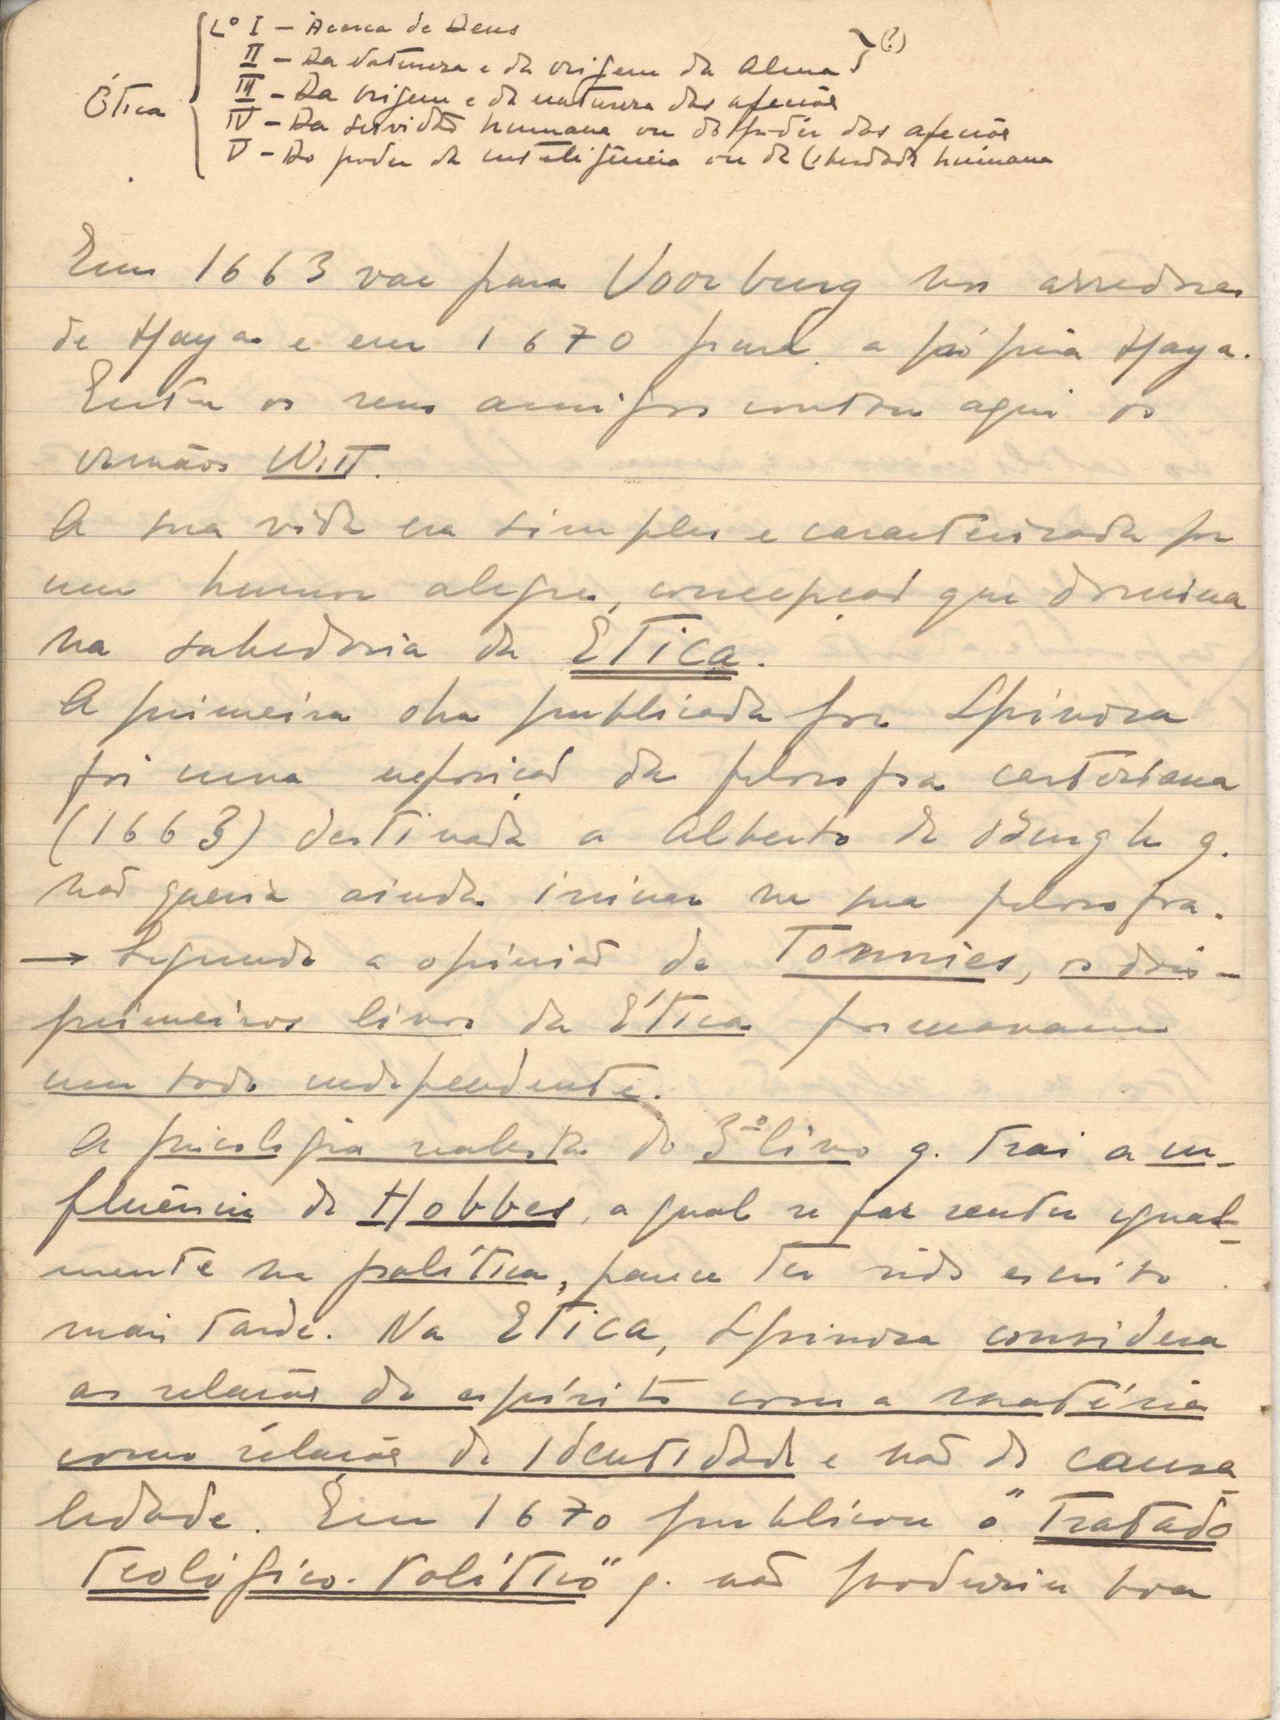 Ética
Lº I - Acerca de Deus
II - Da natureza e da origem da Alma (?)
III - Da origem e da natureza das afeições
IV - Da servidão humana ou do poder das afeições
V - Do poder da inteligência ou da liberdade humana
Em 1663 vae para Voorburg nos arredores
de Haya e em 1670 para a própria Haya.
Entre os seus amigos contou aqui os
irmãos Witt.
A sua vida era simples e caracterizada por
um humor alegre, concepção que domina
na sabedoria da Ética.
A primeira obra publicada por Spinoza
foi uma exposição da filosofia cartesiana
(1663) destinada a Alberto de Burgh q.
não queria ainda iniciar na sua filosofia.
→ Segundo a opinião de Tonnies, os dois
primeiros livros da Ética formavam
um todo independente.
A psicologia realista do 3º livro q. trai a in-
fluência de Hobbes, a qual se faz sentir igual-
mente na política, parece ter sido escrito
mais tarde. Na Etica, Spinoza considera
as relações do espírito com a matéria
como relações de identidade e não de causa
lidade. Em 1670 publicou o "Tratado
Teológico-Político" q. não produziu boa